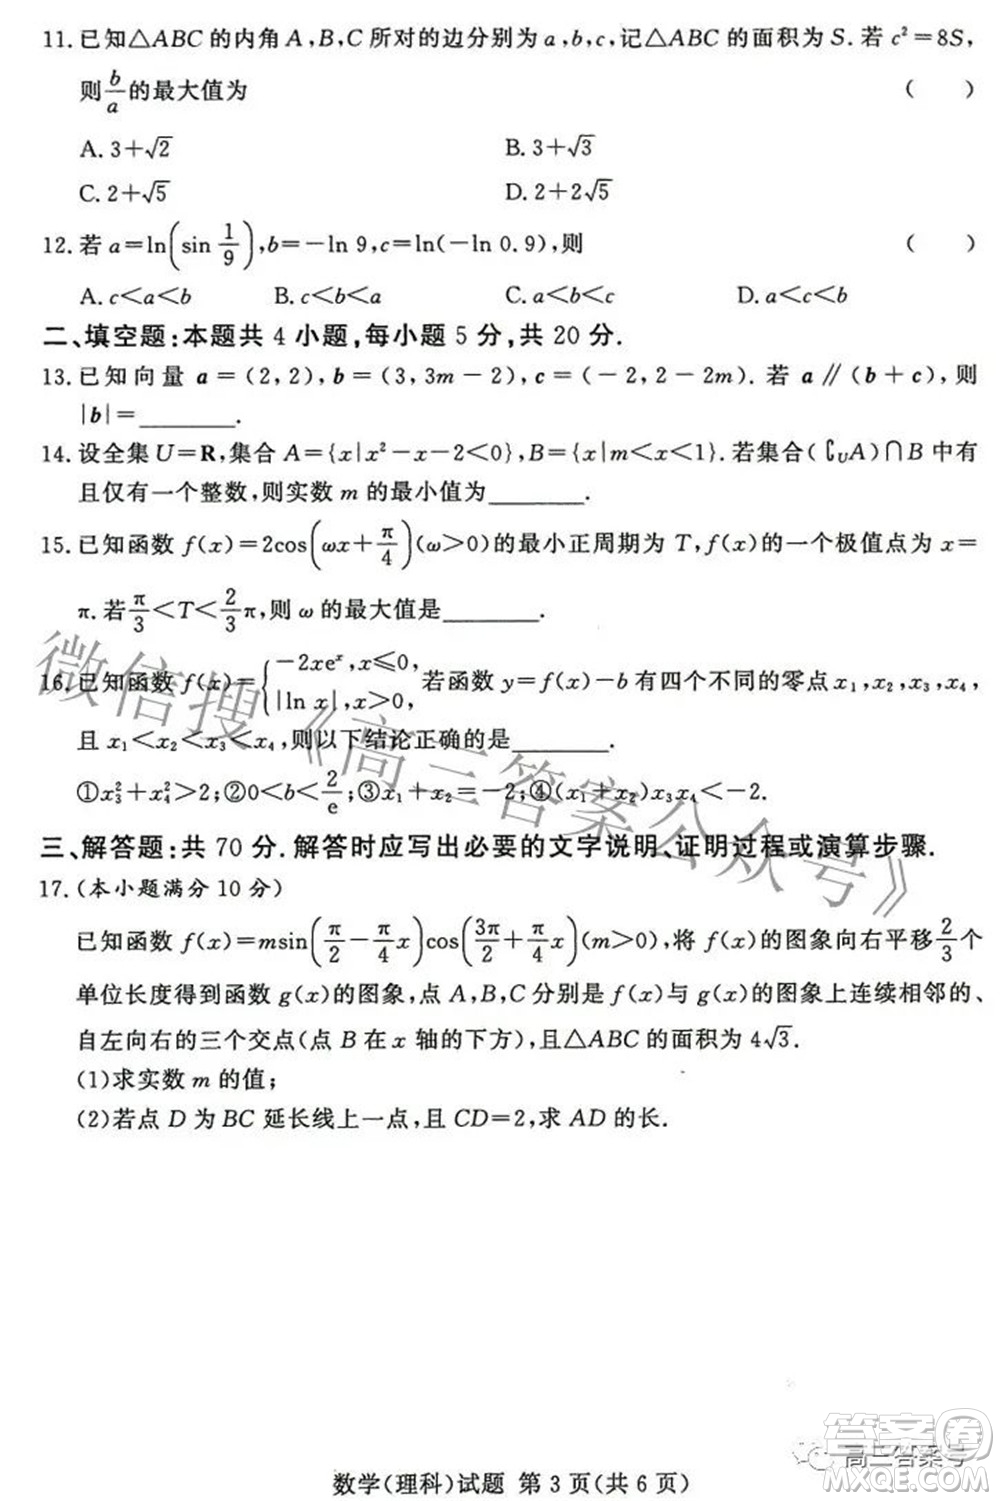 11.已知△ABC的内角A,B,C所对的边分别为a,b,c,记△ABC的面积为S.若c²=8S,
则b/a的最大值为 (　)
A.3+√2 B.3+√3
C.2+√5 D.2+2√5
12.若a=ln(sin 1/9),b=-ln 9,c=ln(-ln 0.9),则 (　)
A.c<a<b B.c<b<a C.a<b<c D.a<c<b
二、填空题:本题共4小题,每小题5分,共20分.
13.已知向量a=(2,2),b=(3,3m-2),c=(-2,2-2m).若a∥(b+c),则
|b|=______.
14.设全集U=R,集合A={x|x²-x-2<0},B={x|m<x<1}.若集合(∁UA)∩B中有
且仅有一个整数,则实数m的最小值为______.
15.已知函数f(x)=2cos(ωx+π/4)(ω>0)的最小正周期为T,f(x)的一个极值点为x=
π.若π/3<T<2/3π,则ω的最大值是______.
16.已知函数f(x)={-2xeˣ,x≤0, |ln x|,x>0, 若函数y=f(x)-b有四个不同的零点x₁,x₂,x₃,x₄,
且x₁<x₂<x₃<x₄,则以下结论正确的是______.
①x₃²+x₄²>2;②0<b<2/e;③x₁+x₂=-2;④(x₁+x₂)x₃x₄<-2.
三、解答题:共70分.解答时应写出必要的文字说明、证明过程或演算步骤.
17.(本小题满分10分)
已知函数f(x)=msin(π/2-π/4x)cos(3π/2+π/4x)(m>0),将f(x)的图象向右平移2/3个
单位长度得到函数g(x)的图象,点A,B,C分别是f(x)与g(x)的图象上连续相邻的、
自左向右的三个交点(点B在x轴的下方),且△ABC的面积为4√3.
(1)求实数m的值;
(2)若点D为BC延长线上一点,且CD=2,求AD的长.
数学(理科)试题 第3页(共6页)
微信搜《高三答案公众号》
高三答案号
答案圈
MXQE.COM